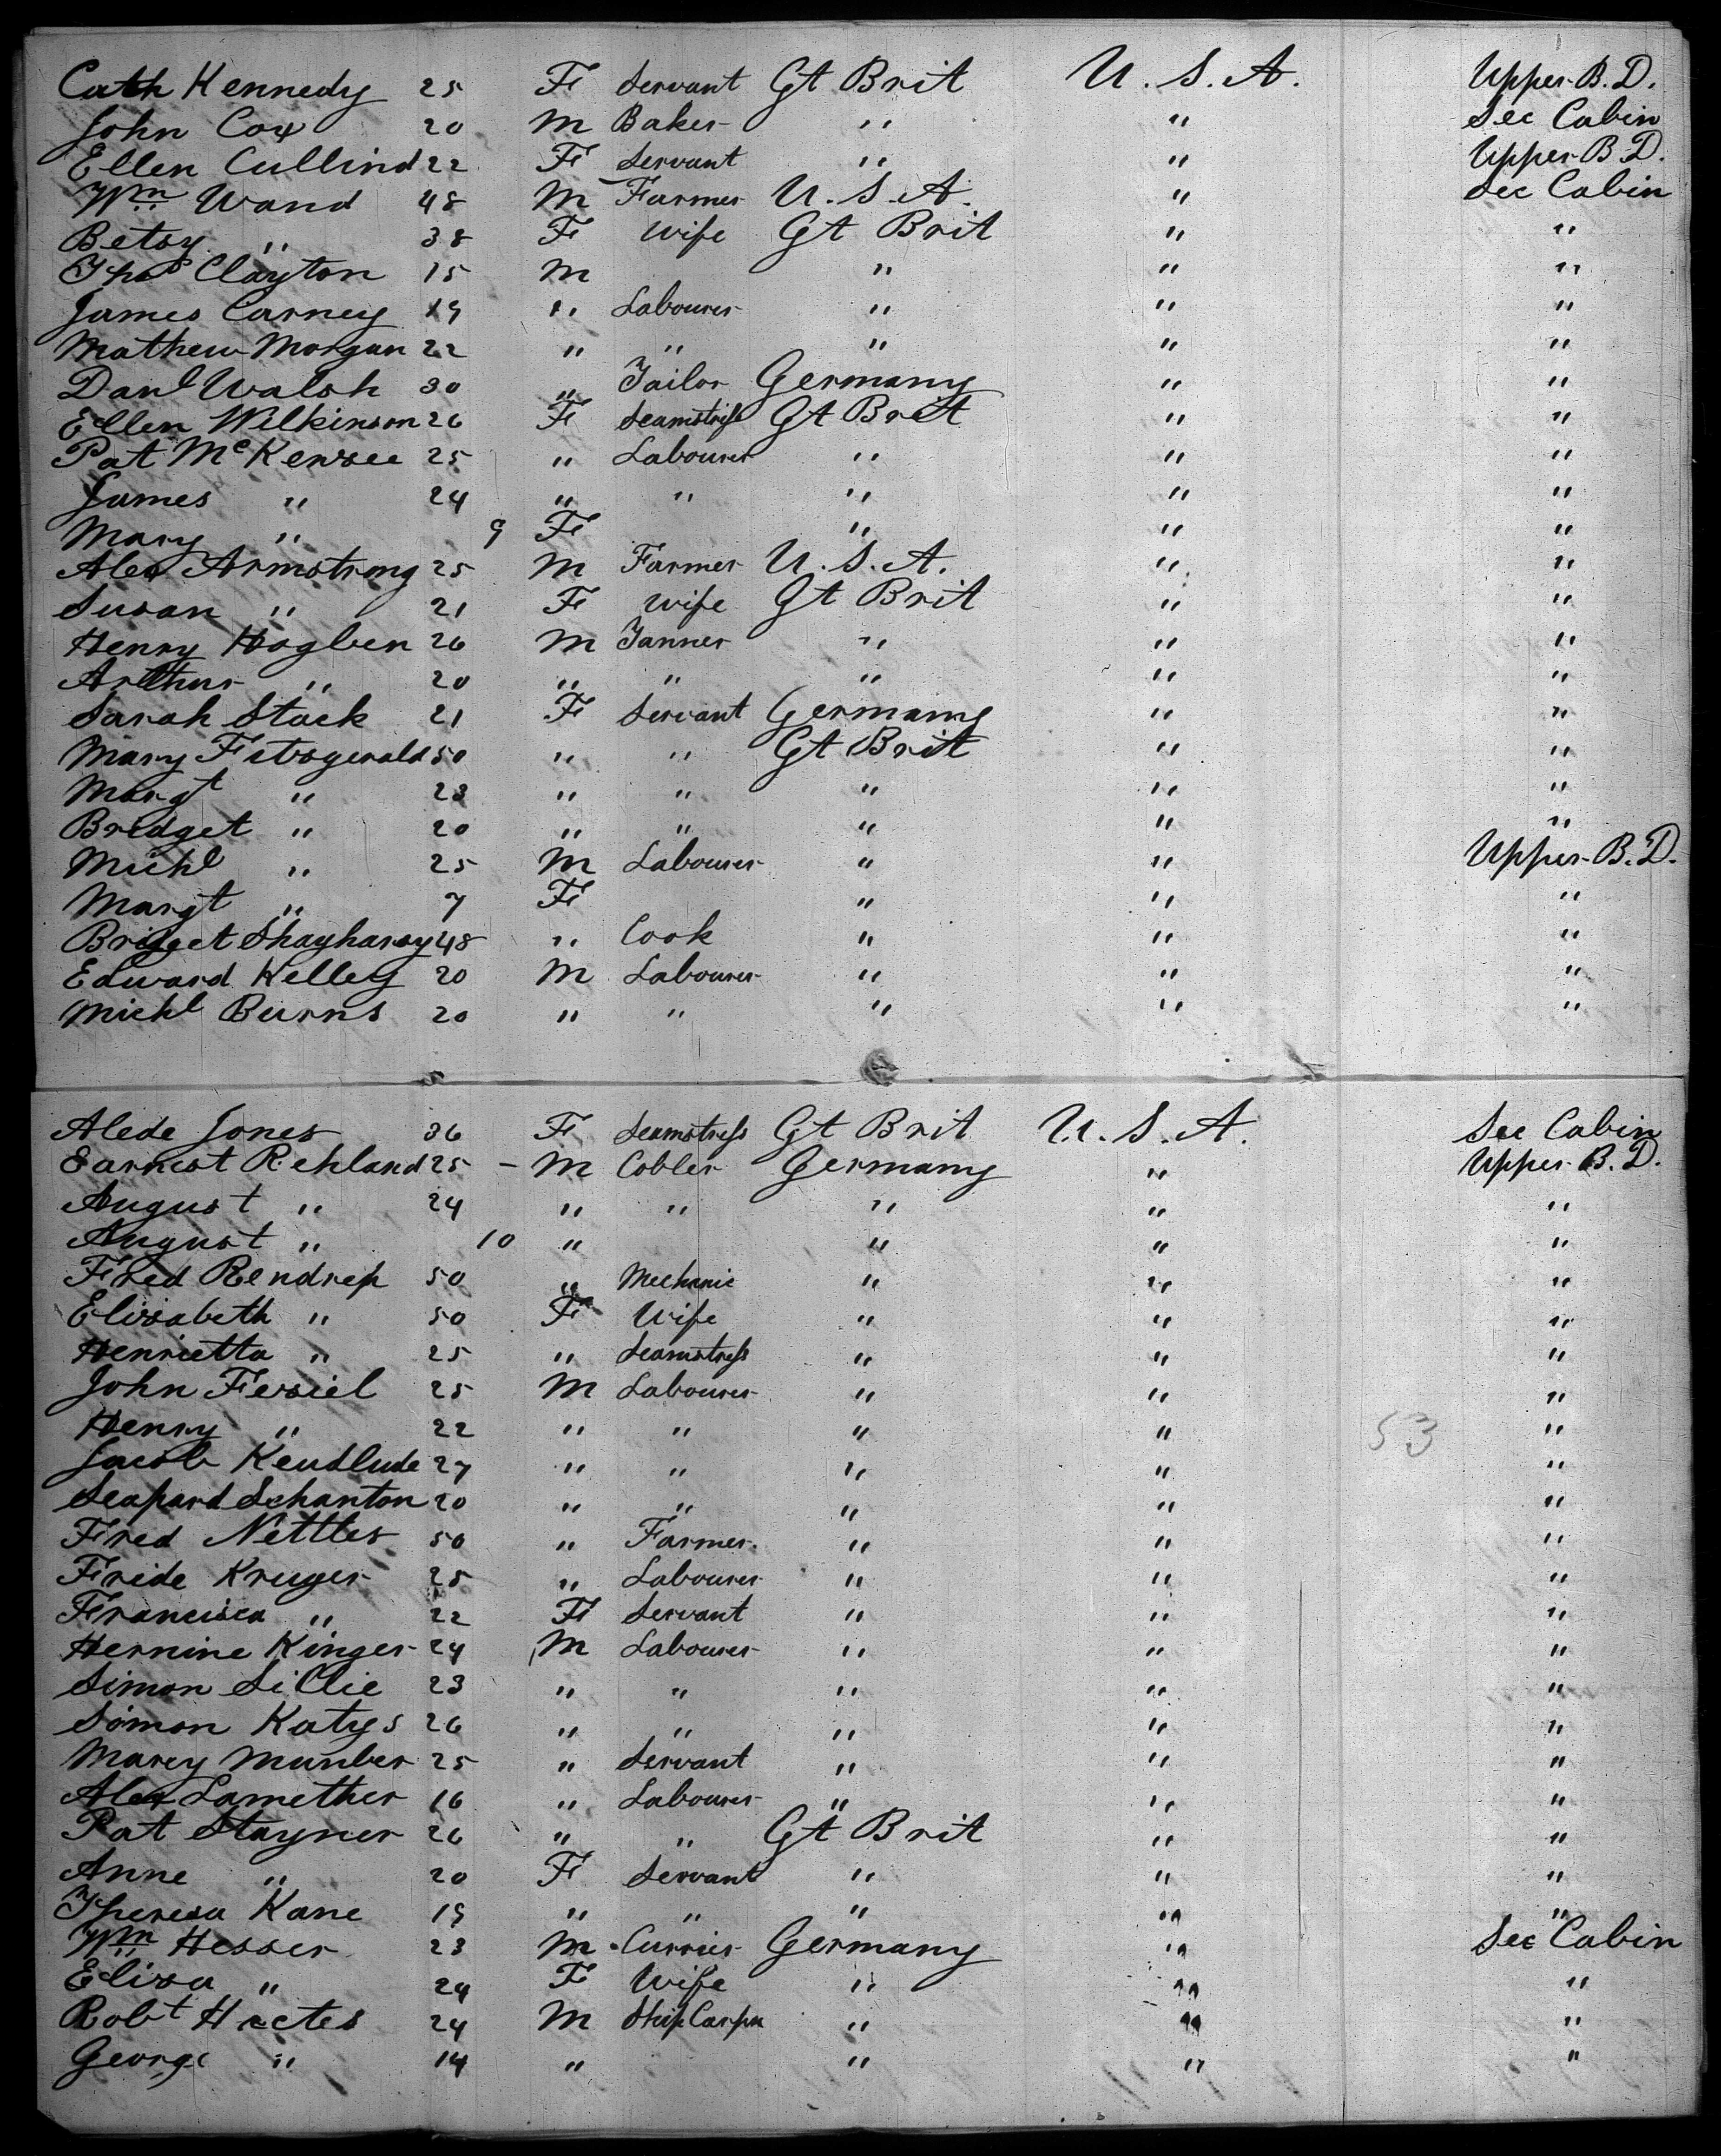 Cath Kennedy 25 F Servant Gt Brit U.S.A. Upper B.D.
John Cox 20 M Baker " " Sec Cabin
Ellen Cullind 22 F Servant " " Upper B.D.
Wm Wand 48 M Farmer U.S.A. " Sec Cabin
Betsy " 38 F Wife Gt Brit " "
Thos Clayton 15 M " " "
James Carney 19 " Labourer " " "
Mathew Morgan 22 " " " " "
Danl Walsh 30 " Tailor Germany " "
Ellen Wilkinson 26 F Seamstress Gt Brit " "
Pat McKenzee 25 " Labourer " " "
James " 24 " " " " "
Mary " 9 F " " "
Alex Armstrong 25 M Farmer U.S.A. " "
Susan " 21 F Wife Gt Brit " "
Henry Hogben 26 M Tanner " " "
Arthur " 20 " " " " "
Sarah Stack 21 F Servant Germany " "
Mary Fitzgerald 50 " " Gt Brit " "
Margt " 23 " " " " "
Bridget " 20 " " " " "
Michl " 25 M Labourer " " Upper B.D.
Margt " 7 F " " "
Bridget 48 " Cook " " "
Edward Kelley 20 M Labourer " " "
Michl Burns 20 " " " " "
Alede Jones 36 F Seamstress Gt Brit U.S.A. Sec Cabin
Earnest Rehland 25 - M Cobler Germany " Upper B.D.
August " 24 " " " " "
August " 10 " " " "
Fred Rendrep 50 " Mechanic " " "
Elizabeth " 50 F Wife " " "
Henrietta " 25 " Seamstress " " "
John Feziel 25 M Labourer " " "
Henry " 22 " " " " 53 "
Jacob Kendlude 27 " " " " "
Seapard Schanton 20 " " " " "
Fred Nettles 50 " Farmer " " "
Fride Kruger 25 " Labourer " " "
Francisca " 22 F Servant " " "
Hernine Kinger 24 M Labourer " " "
Simon Sillie 23 " " " " "
Simon Katys 26 " " " " "
Marey Munber 25 " Servant " " "
Alex Lamether 16 " Labourer " " "
Pat Stayner 26 " " Gt Brit " "
Anne " 20 F Servant " " "
Theresa Kane 19 " " " " "
Wm Hesser 23 M Currier Germany " Sec Cabin
Eliza " 24 F Wife " " "
Robt 24 M Ship Carpn " " "
George " 14 " " " "